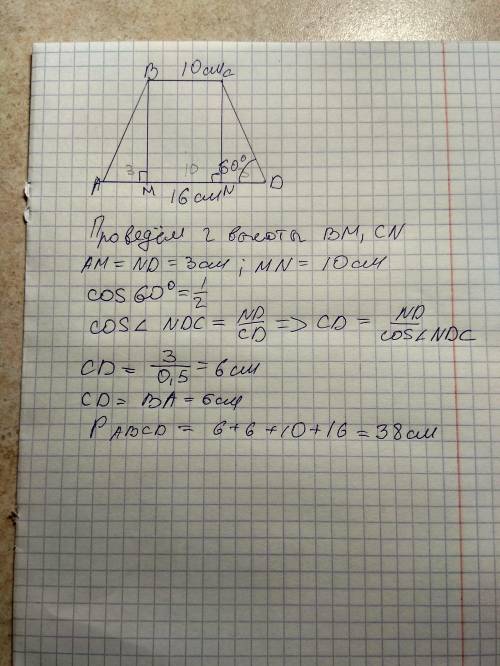 B 10 см C
3 10 60° 3
A M 16 см N D
Проведём 2 высоты BM, CN
AM = ND = 3 см ; MN = 10 см
cos 60° = 1/2
cos∠ NDC = ND/CD => CD = ND/cos∠NDC
CD = 3/0,5 = 6 см
CD = BA = 6 см
P ABCD = 6+6+10+16 = 38 см